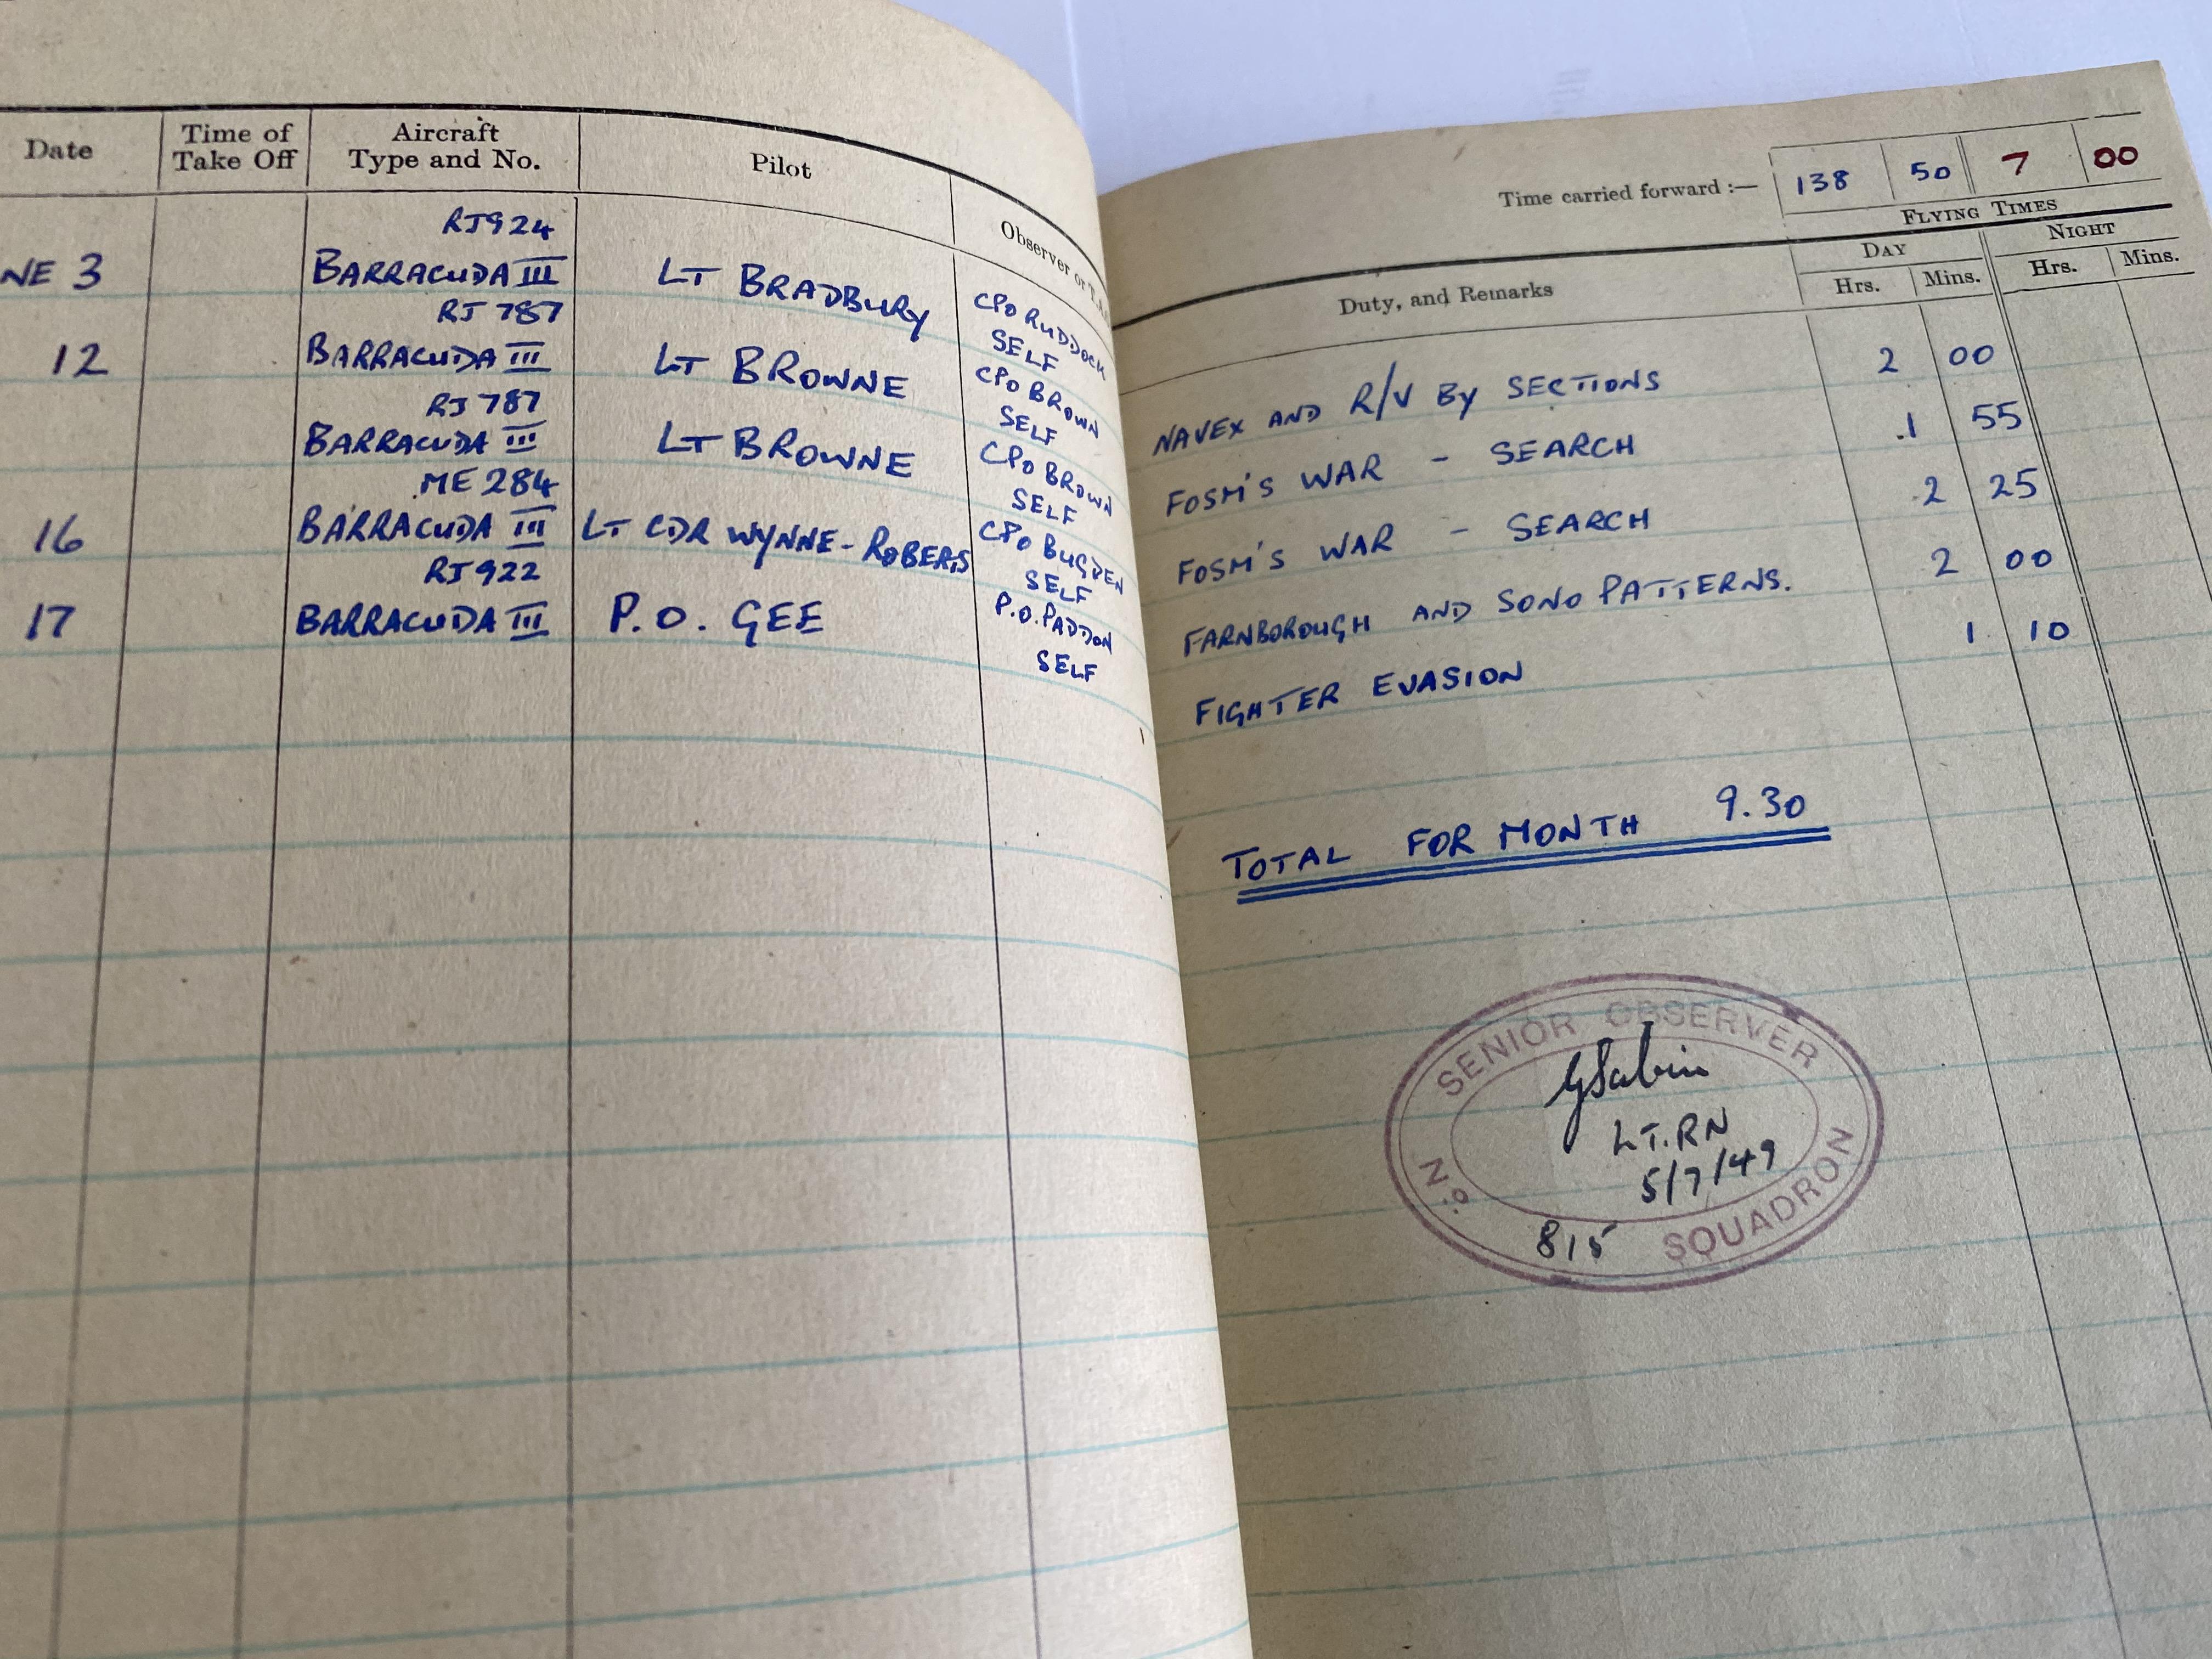 Date Time of Take Off Aircraft Type and No. Pilot Observer or
NE 3 RJ924 BARRACUDA III LT BRADBURY CPO RUDDOCK SELF
12 RJ 787 BARRACUDA III LT BROWNE CPO BROWN SELF
RJ 787 BARRACUDA III LT BROWNE CPO BROWN SELF
16 ME 284 BARRACUDA III LT CDR WYNNE-ROBERTS CPO BUGDEN SELF
17 RJ 922 BARRACUDA III P.O. GEE P.O. PADDON SELF
Time carried forward :— 138 50 7 00
FLYING TIMES
Duty, and Remarks DAY NIGHT
Hrs. Mins. Hrs. Mins.
NAVEX AND R/V BY SECTIONS 2 00
FOSM'S WAR - SEARCH 1 55
FOSM'S WAR - SEARCH 2 25
FARNBOROUGH AND SONO PATTERNS. 2 00
FIGHTER EVASION 1 10
TOTAL FOR MONTH 9.30
SENIOR OBSERVER
GSabin
LT. RN
5/7/49
No. 815 SQUADRON